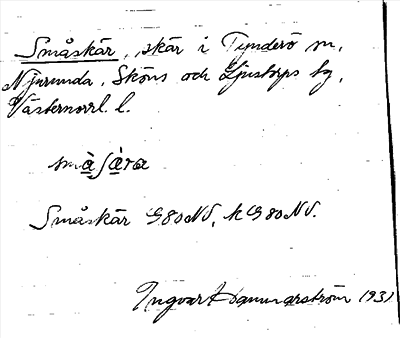 Småskär, skär i Tynderö sn,
Njurunda, Sköns och Ljustorps tg,
Västernorrl. l.
småʃära
Småskär G80NV, kG80NV.
Ingvar Hammarström 1931